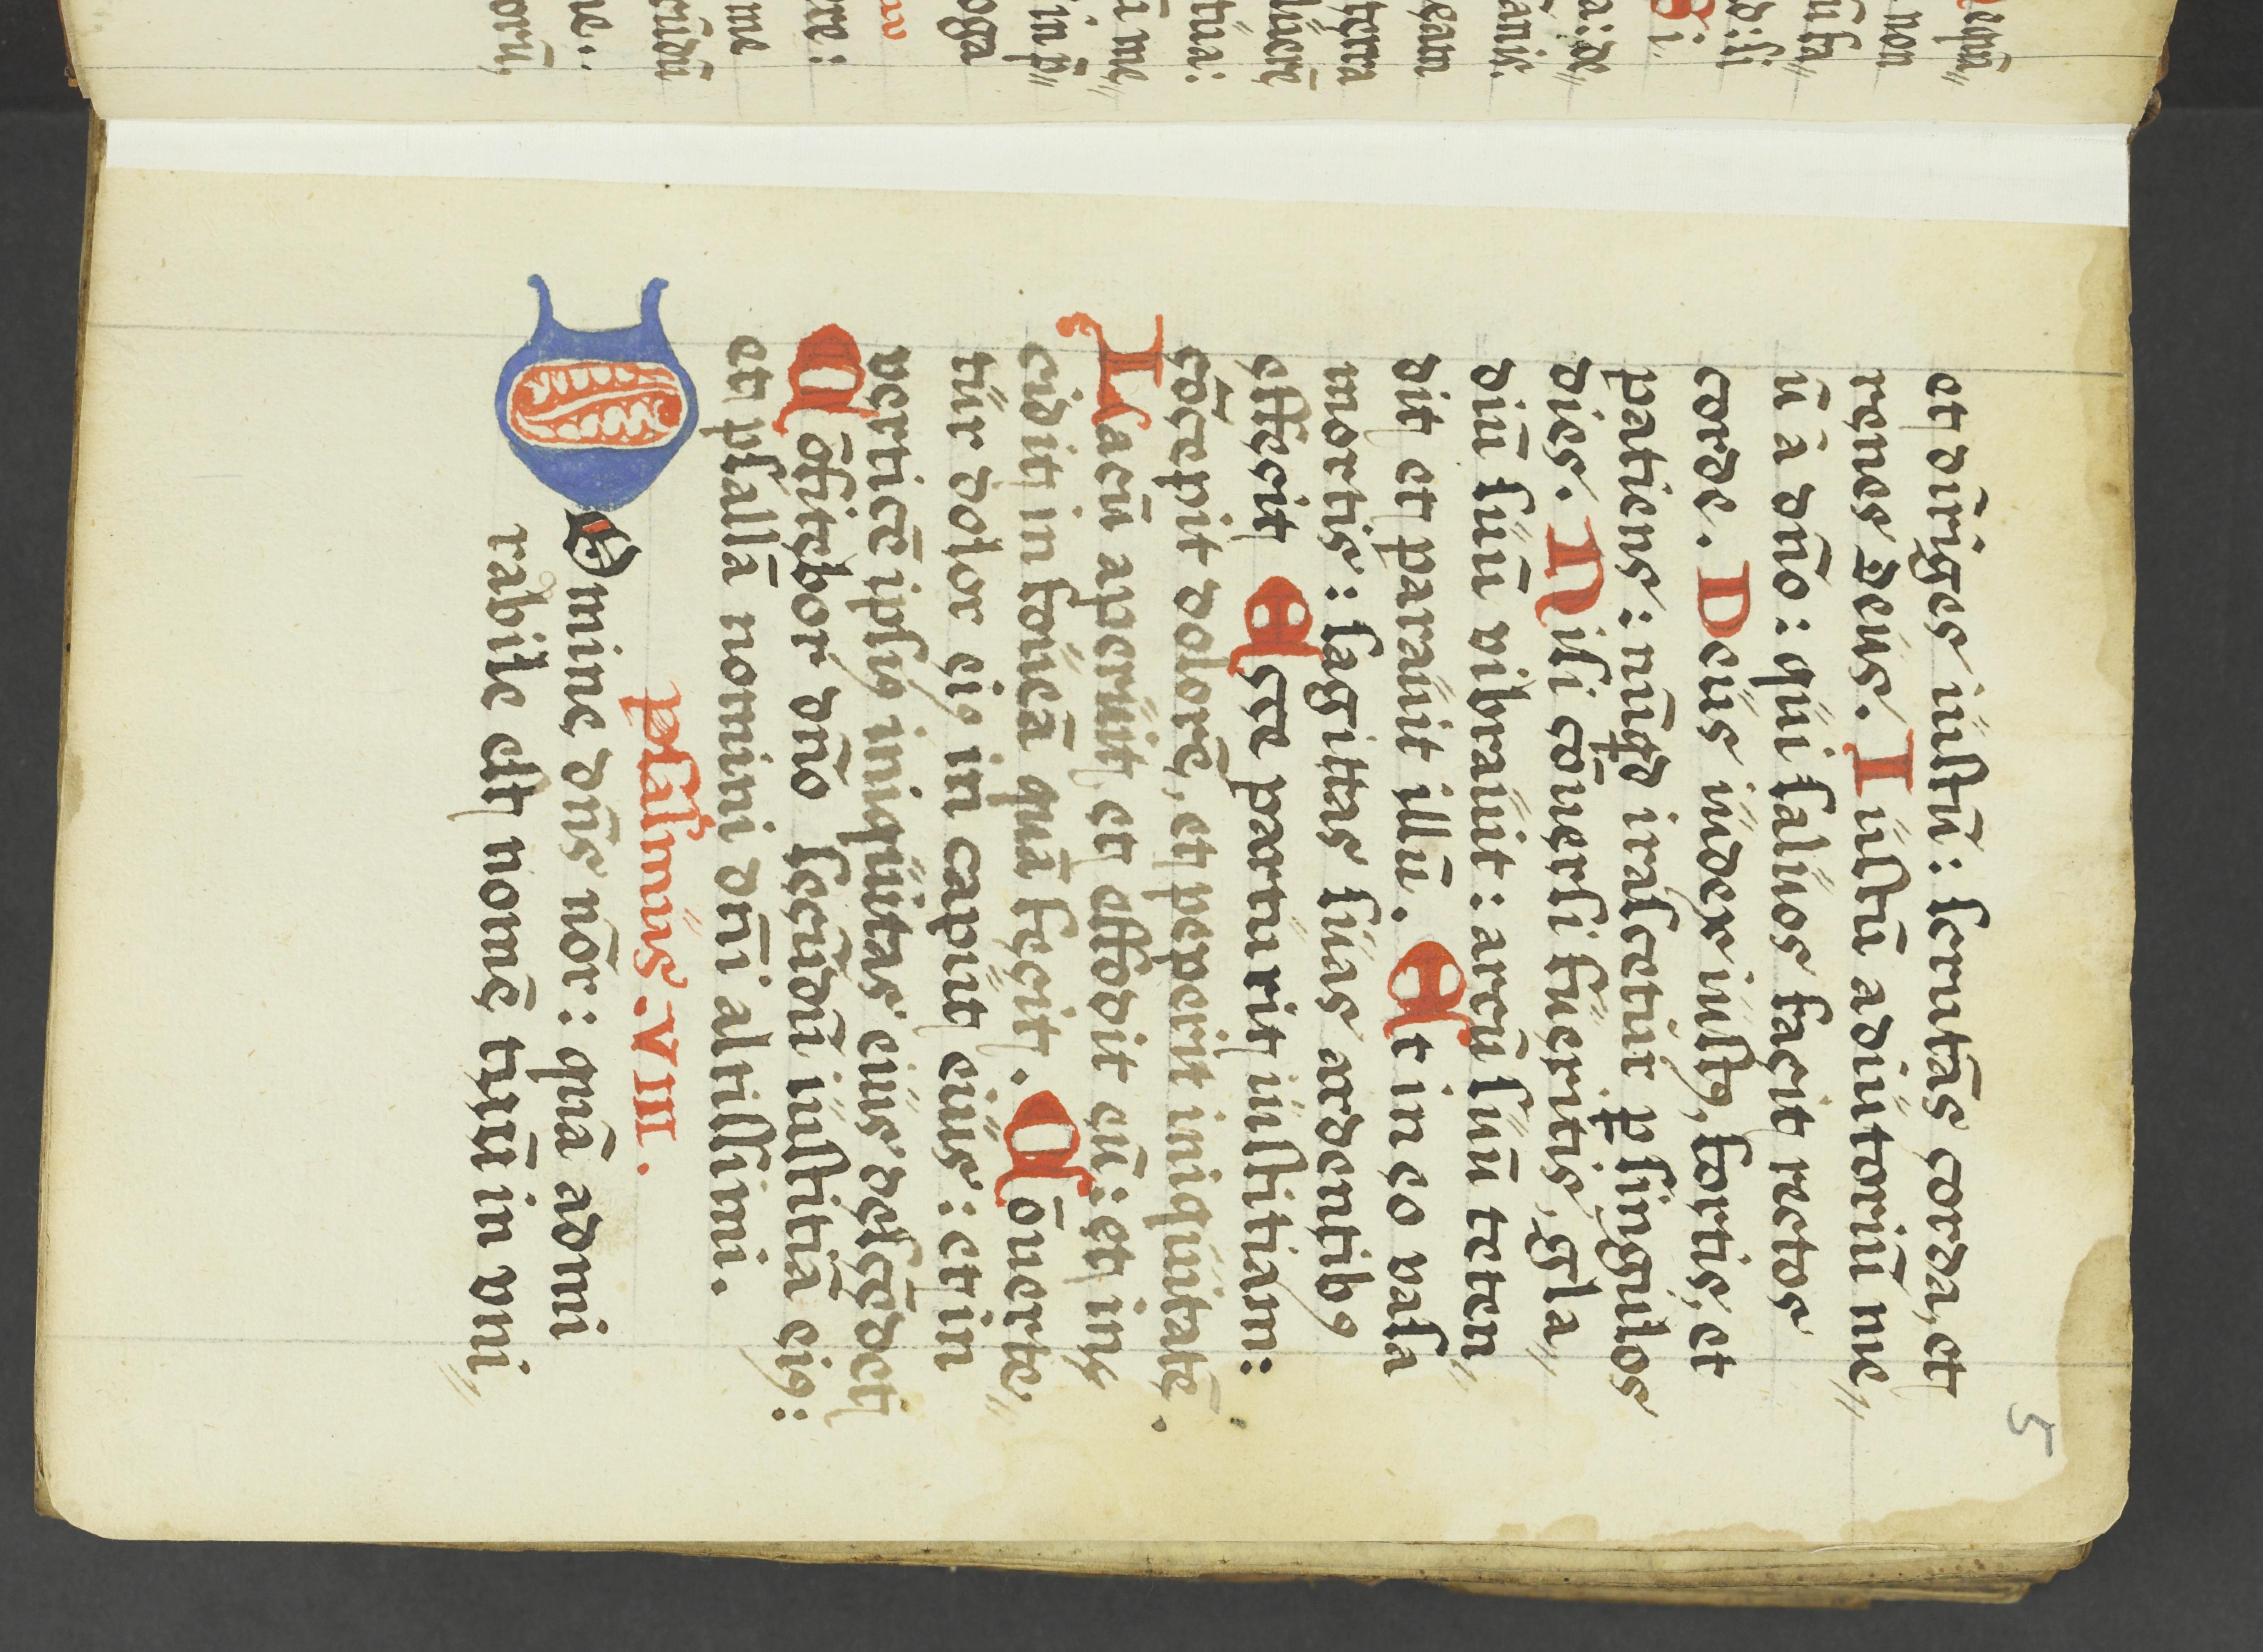 5
et dirīges iustū: scrutās corda, et
renes Deus. Iustū adiutoriū me〃
ū ā dn̄o: qui saluos facit rectos
corde. Deus iudex iustꝰ, fortis, et
patiens: nūqd irascetur ꝑ singulos
dies. Nisi cōuersi fueritis, gla〃
diū suū vibrauit: arcū suū teten〃
dit et parauit illū. Et in eo vasa
mortis: sagittas suas ardentibꝰ
effecit Ecce parturit iustitiam:
cōcepit dolorē, et peperit iniquitatē.
Lacū aperuit et effodit eū: et in〃
cidit in foueā quā fecit. Cōuerte〃
tur dolor eiꝰ in caput eius: et in
verticē ipsiꝰ iniquitas eius descēdet
Cōfitebor dn̄o secūdū iustitiā eiꝰ:
et psallā nomini dn̄i altissimi.
psalmus. VIII.
DOmine dn̄s nōr: quā admi
rabile est nomē tuū in vni〃
equā〃
non
B i.
amis.
egam
terra
tua:
ū me〃
in p̄〃
ere:
me
orū,